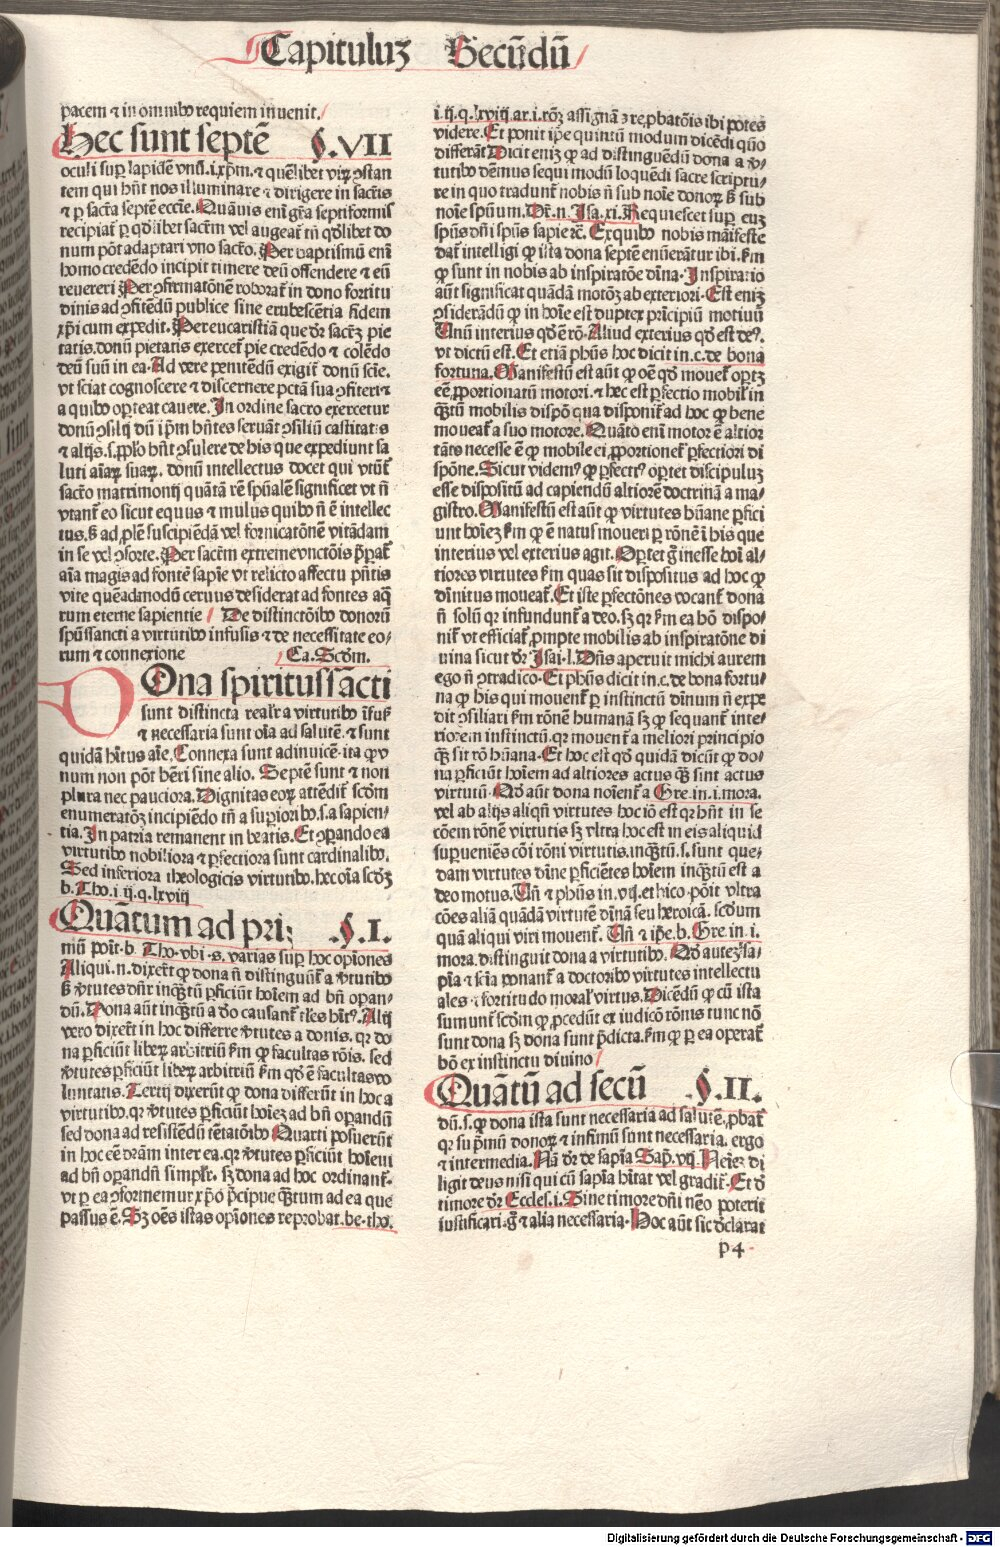 Capituluȝ Secūdū
pacem ⁊ in omnibꝰ requiem inuenit.
Hec sunt septē §.VII
oculi suꝑ lapidē vnū.i.xp̄m.⁊ quēlibet virꝝ ꝯstan
tem qui hn̄t nos illuminare ⁊ dirigere in sacr̄is
⁊ ꝑ sacr̄a septē eccl̄ie. Quāuis eni gr̄a septiformis
recipiat̄ ꝑ qd̄libet sacr̄m vel augeat̄ tn̄ qd̄libet do
num pōt adaptari vno sacr̄o. Per baptismū eni
homo credēdo incipit timere deū offendere ⁊ eū
reuereri Per ꝯfirmatōnē roborat̄ in dono fortitu
dinis ad ꝯfitēdū publice sine erubescētia fidem
xp̄i cum expedit. Per eucaristiā que dr̄ sacr̄ȝ pie
tatis.donū pietatis exercet̄ pie credēdo ⁊ colēdo
deū suū in ea. Ad vere penitēdū exigit̄ donū scīe.
vt sciat cognoscere ⁊ discernere pctā sua ꝯfiteri ⁊
a quibꝰ oꝑteat cauere. In ordine sacro exercetur
donū ꝯsilij dū ip̄m hn̄tes seruāt ꝯsiliū castitatis
⁊ alijs.s.ꝓplo hn̄t ꝯsulere de his que expediunt sa
luti aīaꝝ suaꝝ. donū intellectus docet qui vtūt̄
sacr̄o matrimonij quātā rē spūalē significet vt n̄
vtant̄ eo sicut equus ⁊ mulus quibꝰ n̄ ē intellec
tus.ß ad ꝓlē suscipiēdā vel fornicatōnē vitādam
in se vel ꝯsorte. Per sacr̄m extreme vnctōis p̄ꝑat̄
aīa magis ad fontē sapīe vt relicto affectu pn̄tis
vite quēadmodū ceruus desiderat ad fontes aqͣ
rum eterne sapientie De distinctōibꝰ donorū
spūssancti a virtutibꝰ infusis ⁊ de necessitate eo-
rum ⁊ connexione Ca. Scdm.
Dona spiritussācti
sunt distincta realr̄ a virtutibꝰ īfusis
⁊ necessaria sunt oīa ad salutē.⁊ sunt
quidā hītus aīe. Connexa sunt adinuicē.ita ꝙ v
num non pōt hēri sine alio. Septē sunt ⁊ non
plura nec pauciora. Dignitas eoꝝ attēdit̄ scdm
enumeratōȝ incipiēdo tn̄ a superiori bꝰ.s.a sapien-
tia. In patria remanent in beatis. Et oꝑando ea
virtutibꝰ nobiliora ⁊ ꝑfectiora sunt cardinalibꝰ.
Sed inferiora theologicis virtutibꝰ. hec oīa scdȝ
b. Tho.i ij.q.lxviij
Quātum ad pri: .§.I.
mū poīt.b. Tho.vbi.s.varias suꝑ hoc opīones
Aliqui.n.dixer̄t ꝙ dona n̄ distinguūt̄ a v̄tutibꝰ
ß v̄tutes dn̄r inqͣȝtū ꝑficiūt hoīem ad bn̄ oꝑan-
dū. Dona aūt inqͣȝtū a deo causant̄ tl̄es hītꝰ. Alij
vero dixer̄t in hoc differre v̄tutes a donis.qꝛ do
na ꝑficiūt liberꝝ arbitriū ẜm ꝙ facultas rōis. sed
v̄tutes ꝑficiūt liberꝝ arbitriū ẜm qd̄ ē facultas vo
luntatis. Tertij dixerūt ꝙ dona differūt in hoc a
virtutibꝰ.qꝛ v̄tutes ꝑficiūt hoīeȝ ad bn̄ oꝑandū
sed dona ad resistēdū tētatōibꝰ Quarti posuerūt
in hoc eē dr̄am inter ea.qꝛ v̄tutes ꝑficiūt hoīem
ad bn̄ oꝑandū simplr̄. sȝ dona ad hoc ordinant̄.
vt ꝑ ea ꝯformemur xp̄o p̄cipue qͣȝtum ad ea que
passus ē. Sȝ oēs istas opīones reprobat.be.tho.
i.ij.q.lxviij.ar.i.rōȝ assignā ⁊ reꝓbatōis ibi potes
videre. Et ponit ip̄e quintū modum dicēdi quo
differāt Dicit eniȝ ꝙ ad distinguēdū dona a v̄-
tutibꝰ dēmus sequi modū loquēdi sacre scriptu-
re in quo tradunt̄ nobis n̄ sub noīe donoꝝ ß sub
noīe spūum. Dr̄.n. Isa.xi. Requiescet suꝑ euȝ
spūs dn̄i spūs sapīe ⁊c̄. Ex quibꝰ nobis māifeste
dat̄ intelligi ꝙ ista dona septē enūerātur ibi. ẜm
ꝙ sunt in nobis ab inspiratōe dīna. Inspiratio
aūt significat quādā motōȝ ab exteriori. Est eniȝ
ꝯsiderādū ꝙ in hoīe est duplex prīcipiū motiuū
Unū interius qd̄ ē rō. Aliud exterius qd̄ est deꝰ.
vt dictū est. Et etiā phūs hoc dicit in.c.de bona
fortuna. Manifestū est aūt ꝙ oē qd̄ mouet̄ oꝑtȝ
eē ꝓportionatū motori.⁊ hec est ꝑfectio mobil̄ in
qͣȝtū mobilis dispō qua disponit̄ ad hoc ꝙ bene
moueat̄ a suo motore. Quāto eni motor ē altior
tāto necesse ē ꝙ mobile ei ꝓportionet̄ ꝑfectiori di
spōne. Sicut videmꝰ ꝙ ꝑfectꝰ oꝑtet discipuluȝ
esse dispositū ad capiendū altiorē doctrinā a ma-
gistro. Manifestū est aūt ꝙ virtutes hūane ꝑfici
unt hoīeȝ ẜm ꝙ ē natus moueri ꝑ rōnē ī his que
interius vel exterius agit. Oꝑtet g̊ inesse hoī al-
tiores virtutes ẜm quas sit dispositus ad hoc ꝙ
dīnitus moueat̄. Et iste ꝑfectōnes vocant̄ dona
n̄ solū qꝛ infundunt̄ a deo.sȝ qꝛ ẜm ea hō dispo-
nit̄ vt efficiat̄ ꝓmpte mobilis ab inspiratōne di
uina sicut dr̄ Isai.l. Dn̄s aperuit michi aurem
ego n̄ ꝯtradico. Et phūs dicit in.c.de bona fortu-
na ꝙ his qui mouent̄ ꝑ instinctū dīnum n̄ expe
dit ꝯsiliari ẜm rōnē humanā sȝ ꝙ sequant̄ inte-
riorem instinctū.qꝛ mouent̄ a meliori principio
qͣȝ sit rō hūana. Et hoc est qd̄ quidā dicūt ꝙ do-
na ꝑficiūt hoīem ad altiores actus qͣȝ sint actus
virtutū. Qd̄ aūt dona noīent̄ a Gre.in.i.mora.
vel ab alijs aliqn̄ virtutes hoc iō est qꝛ hn̄t in se
cōem rōnē virtutis sȝ vltra hoc est in eis aliquid
suꝑueniēs cōi rōni virtutis.inqͣȝtū.s.sunt que-
dam virtutes dīne ꝑficiētes hoīem inqͣȝtū est a
deo motus. Un̄ ⁊ phūs in.vij.ethico.pōit vltra
cōes aliā quādā virtutē dīnā seu heroicā. scdum
quā aliqui viri mouent̄. Un̄ ⁊ ip̄e.b. Gre.in.i.
mora.distinguit dona a virtutibꝰ. Qd̄ auteȝ sa-
pīa ⁊ scīa ponant̄ a doctoribꝰ virtutes intellectu
ales ⁊ fortitudo moral̄ virtus. Dicēdū ꝙ cū ista
sumunt̄ scdm ꝙ ꝓcedūt ex iudicō rōnis tunc nō
sunt dona sȝ dona sunt p̄dicta.ẜm ꝙ ꝑ ea operat̄
hō ex instinctu diuino
Quātū ad secū .§.II.
dū.s.ꝙ dona ista sunt necessaria ad salutē.ꝓbat̄
qꝛ sup̄mū donoꝝ ⁊ infimū sunt necessaria. ergo
⁊ intermedia. Nā dr̄ de sapīa Sap̄.vij. Neīeȝ di
ligit deus nisi qui cū sapīa hītat vel gradit̄. Et d̄
timore dr̄ Eccles.i. Sine timore dn̄i nēo poterit
iustificari.g̊ ⁊ alia necessaria. Hoc aūt sic d̄clarat
p4
Digitalisierung gefördert durch die Deutsche Forschungsgemeinschaft - DFG